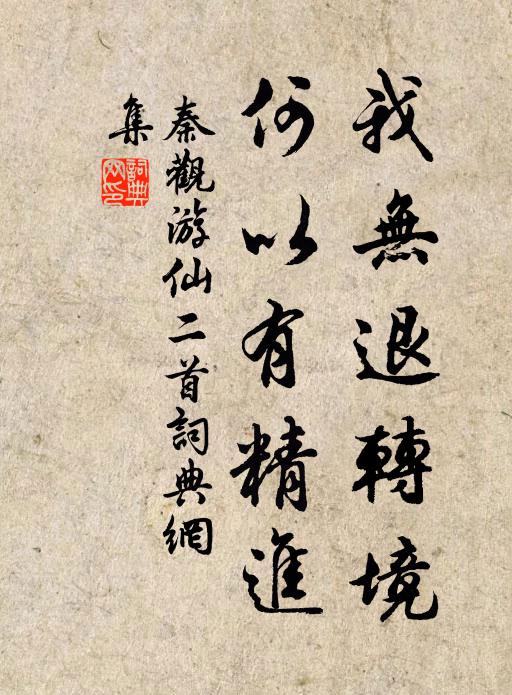 我無退轉境
何以有精進
秦觀游仙二首詞典網
集
詞典網印